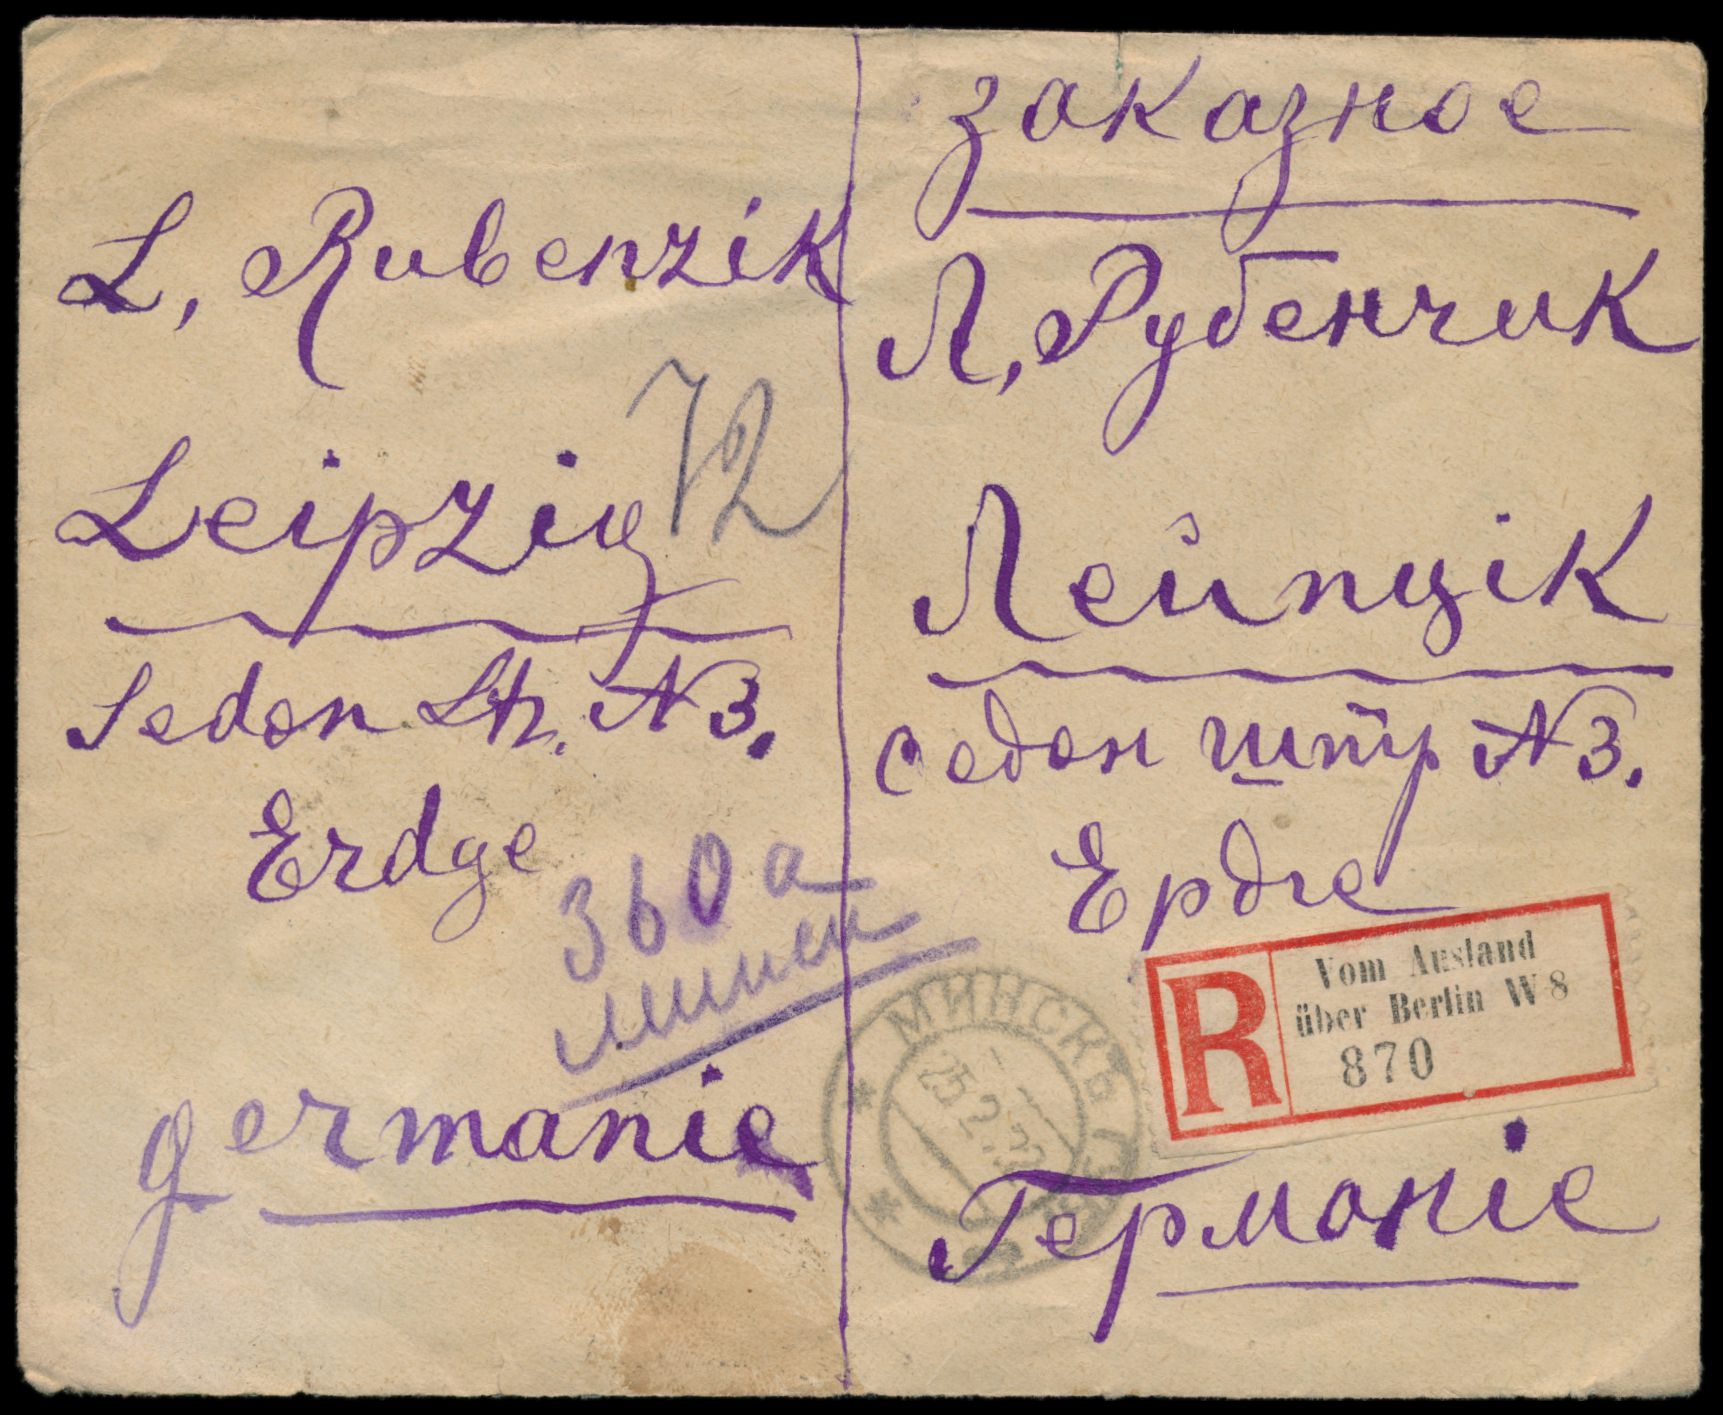 L, Rubenzik
72
Leipzig
Sedan Str. N 3.
Erdge
360 a
germanie
заказное
Л, Рубенчик
Лейпцiк
Седан штр N 3.
Ердге
R
Vom Ausland
über Berlin W 8
870
МИНСКЪ
25.2.22
Германiе